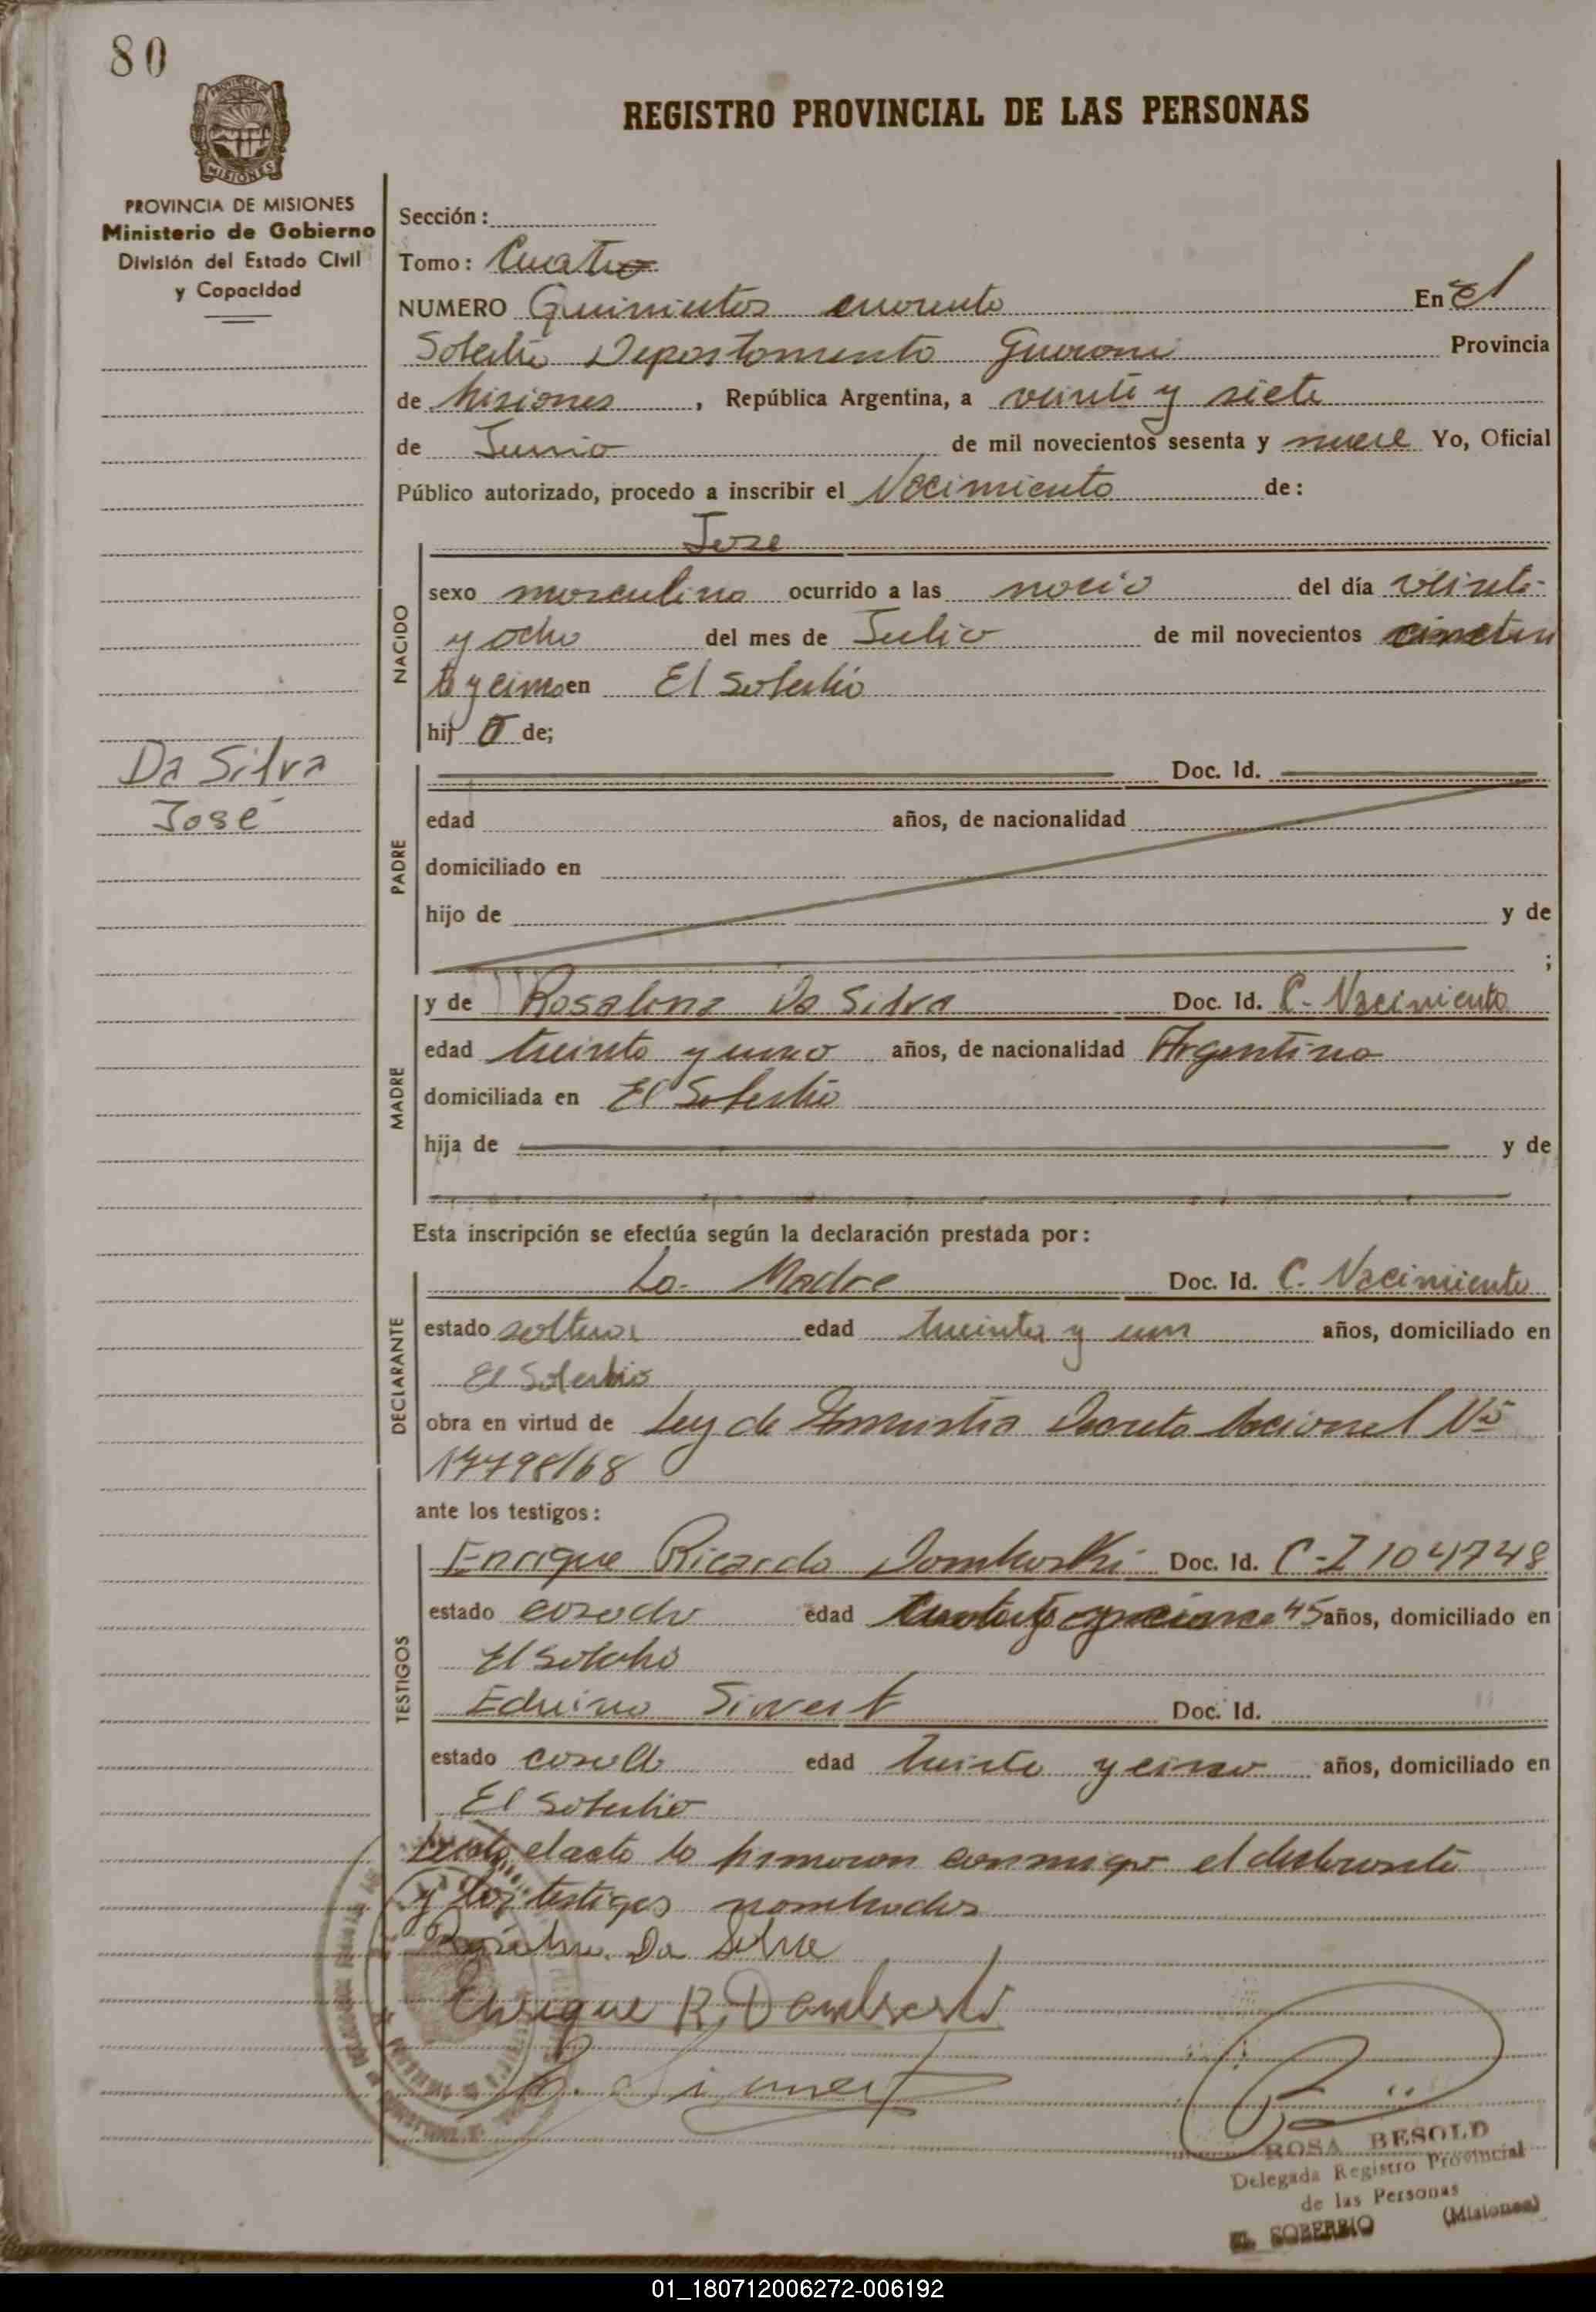 80
REGISTRO PROVINCIAL DE LAS PERSONAS
PROVINCIA DE MISIONES
Ministerio de Gobierno
División del Estado Civil
y Capacidad
Sección:
Tomo: Cuatro
NUMERO Quinientos cuarenta En El
Soberbio Departamento Guarani Provincia
de Misiones, República Argentina, a veinte y siete
de Junio de mil novecientos sesenta y nueve Yo, Oficial
Público autorizado, procedo a inscribir el Nacimiento de:
Jose
NACIDO
sexo masculino ocurrido a las del día veinte
y ocho del mes de Julio de mil novecientos
ta y cinco en El Soberbio
hij o de;
Da Silva
José
PADRE
Doc. Id.
edad años, de nacionalidad
domiciliado en
hijo de y de
;
MADRE
y de Rosalina Da Silva Doc. Id. C. Nacimiento
edad treinta y uno años, de nacionalidad Argentina
domiciliada en El Soberbio
hija de y de
Esta inscripción se efectúa según la declaración prestada por:
DECLARANTE
La Madre Doc. Id. C. Nacimiento
estado soltera edad treinta y un años, domiciliado en
El Soberbio
obra en virtud de Ley de Amnistia Decreto Nacional Nº
17798/68
ante los testigos:
TESTIGOS
Enrique Ricardo Domkoski Doc. Id. C-I 104748
estado casado edad 45 años, domiciliado en
El Soberbio
Eduino Sivert Doc. Id.
estado casado edad treinta y cinco años, domiciliado en
El Soberbio
el acta la firmaron conmigo el declarante
y los testigos nombrados
Da Silva
Enrique R.
ROSA BESOLD
Delegada Registro Provincial
de las Personas
EL SOBERBIO (Misiones)
01_180712006272-006192